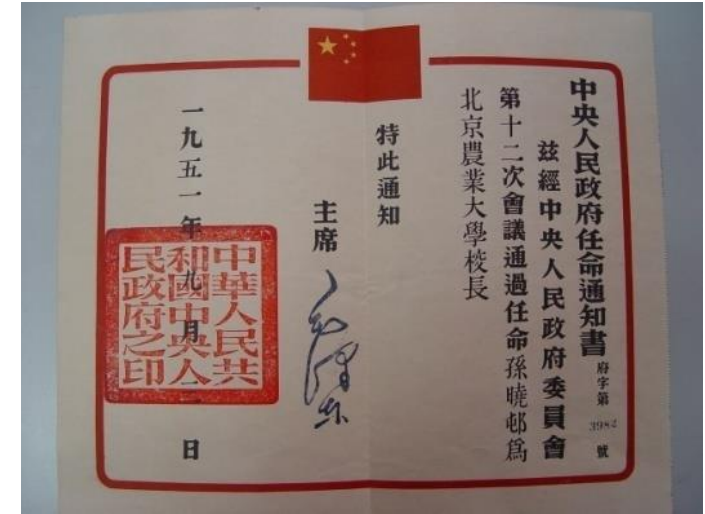 中央人民政府任命通知書
府字第3982號
茲經中央人民政府委員會
第十二次會議通過任命孫曉邨爲
北京農業大學校長
特此通知
主席 毛澤东
一九五一年九月二日
中華人民共
和國中央人
民政府之印